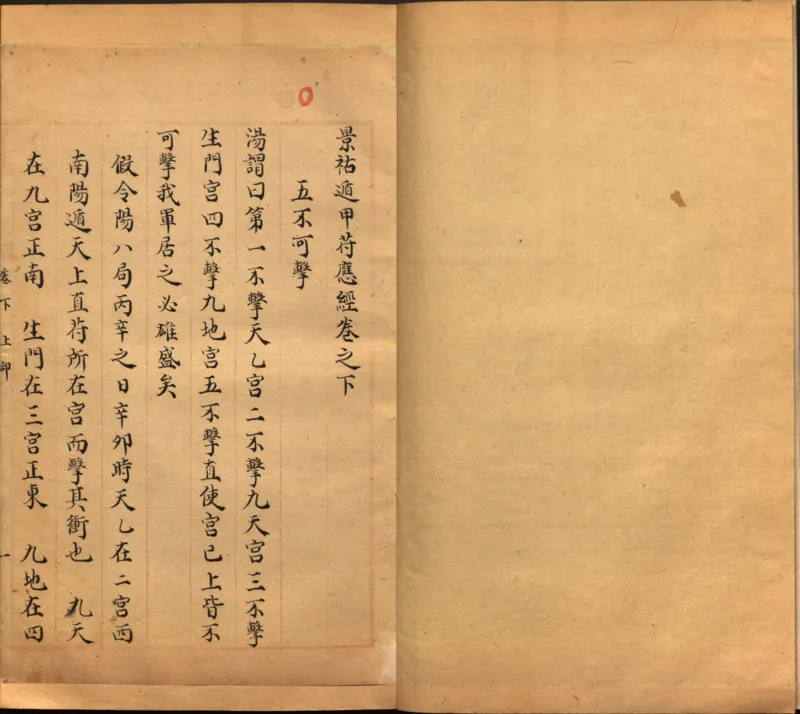 景祐遁甲苻應經卷之下
五不可擊
湯謂曰第一不擊天乙宮二不擊九天宮三不擊
生門宮四不擊九地宮五不擊直使宮已上皆不
可擊我軍居之必雄盛矣
假令陽八局丙辛之日辛卯時天乙在二宮西
南陽遁天上直苻所在宮而擊其衝也 九天
在九宮正南 生門在三宮正東 九地在四
卷下 上卸 一